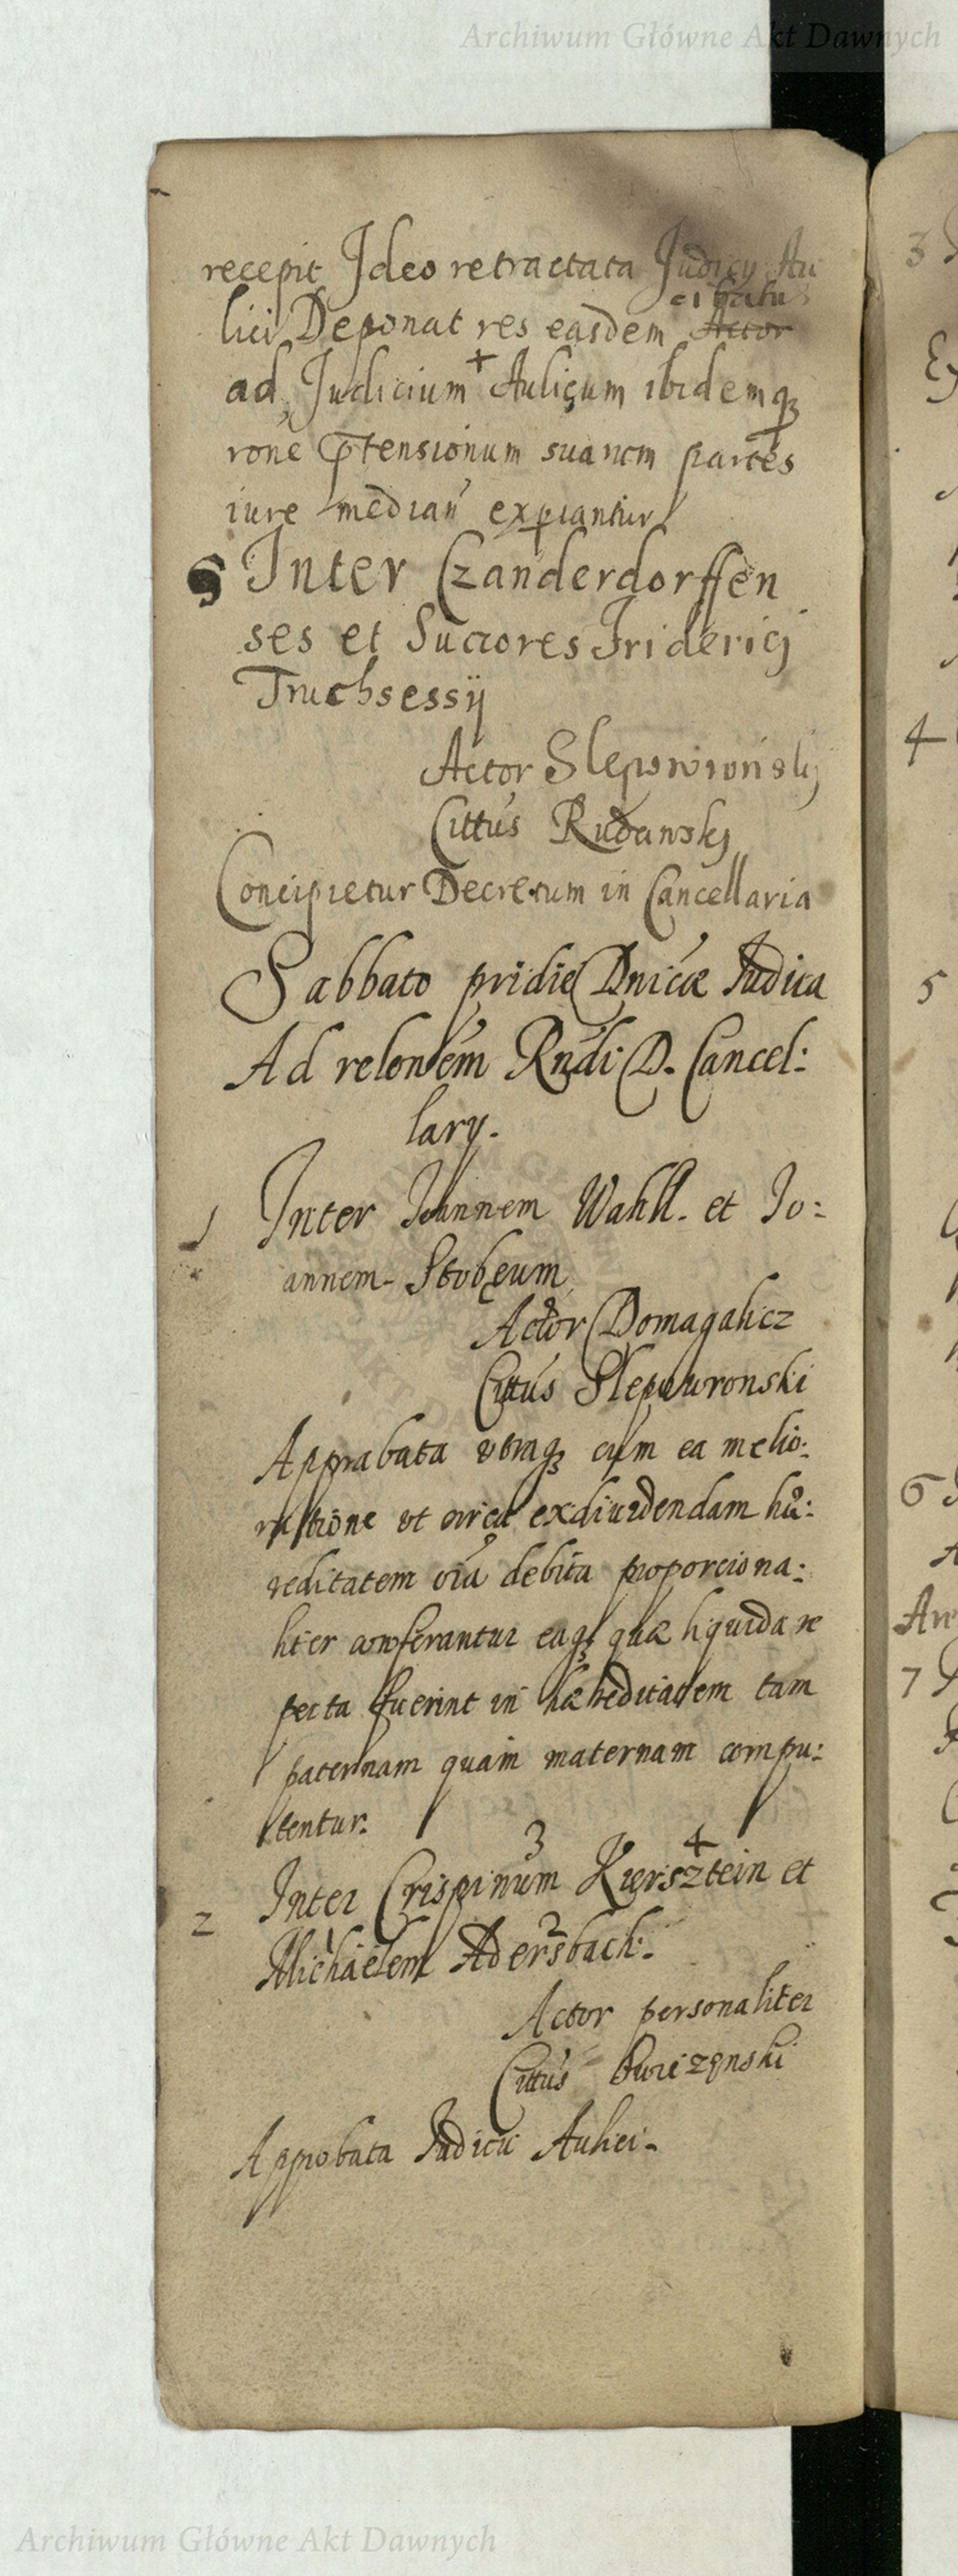 Archiwum Główne Akt Dawnych
recepit Ideo retractata Judicy Au
citatus
lici Deponat res easdem Actor
ad Judicium + Aulicum ibidemq
rone ptensionum suarum partes
iure median expiantur
9 Inter Czanderdorffen
ses et Succores Friderici
Truchsessij
Actor Slepowronski
Cittus Rudawskj
Concipietur Decretum in Cancellaria
Sabbato pridie Dnicæ Judica
Ad relonem Rndi D. Cancel:
lary.
1 Inter Joannem Wahll. et Jo:
annem Stobeum
Actor Domagalicz
Cittus Slepowronski
Approbata utraq cum ea melio:
ratione ut circa exdiuidendam hæ:
reditatem oia debita proporciona:
liter conferantur eaq quæ liquida re
perta fuerint in hæreditatem tam
paternam quam maternam compu:
tentur.
3 4
2 Inter Crispinum Kiersztein et
1 2
Michaelem Adersbach.
Actor personaliter
Cittus
Approbata Judicii Aulici.
3
4
5
6
7
Archiwum Główne Akt Dawnych